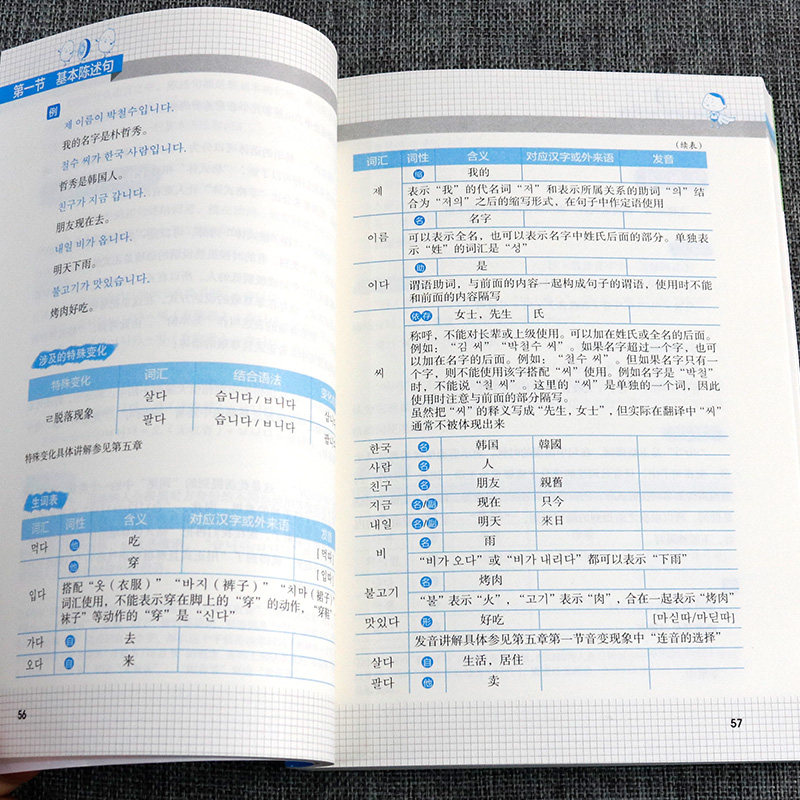 第一节 基本陈述句
例
제 이름이 박철수입니다.
我的名字是朴哲秀。
철수 씨가 한국 사람입니다.
哲秀是韩国人。
친구가 지금 갑니다.
朋友现在去。
내일 비가 옵니다.
明天下雨。
불고기가 맛있습니다.
烤肉好吃。
涉及的特殊变化
特殊变化 词汇 结合语法
ㄹ脱落现象
살다 습니다/ㅂ니다
팔다 습니다/ㅂ니다
特殊变化具体讲解参见第五章
生词表
词汇 词性 含义 对应汉字或外来语
먹다 他 吃 [먹따]
입다
他 穿 [입따]
搭配“옷(衣服)”“바지(裤子)”“치마(裙子)”
词汇使用，不能表示穿在脚上的“穿”的动作，“穿鞋/
袜子”等动作的“穿”是“신다”
가다 自 去
오다 自 来
56
(续表)
词汇 词性 含义 对应汉字或外来语 发音
제
缩 我的
表示“我”的代名词“저”和表示所属关系的助词“의”结
合为“저의”之后的缩写形式，在句子中作定语使用
이름
名 名字
可以表示全名，也可以表示名字中姓氏后面的部分。单独表
示“姓”的词汇是“성”
이다
助 是
谓语助词，与前面的内容一起构成句子的谓语，使用时不能
和前面的内容隔写
씨
依存 女士，先生 氏
称呼，不能对长辈或上级使用。可以加在姓氏或全名的后面。
例如：“김 씨”“박철수 씨”。如果名字超过一个字，也可
以加在名字的后面。例如：“철수 씨”。但如果名字只有一
个字，则不能使用该字搭配“씨”使用。例如名字是“박철”
时，不能说“철 씨”。这里的“씨”是单独的一个词，因此
使用时注意与前面的部分隔写。
虽然把“씨”的释义写成“先生，女士”，但实际在翻译中“씨”
通常不被体现出来
한국 名 韩国 韓國
사람 名 人
친구 名 朋友 親舊
지금 名/副 现在 只今
내일 名/副 明天 來日
비
名 雨
“비가 오다”或“비가 내리다”都可以表示“下雨”
불고기
名 烤肉
“불”表示“火”，“고기”表示“肉”，合在一起表示“烤肉”
맛있다
形 好吃 [마싣따/마딛따]
发音讲解具体参见第五章第一节音变现象中“连音的选择”
살다 自 生活，居住
팔다 他 卖
57